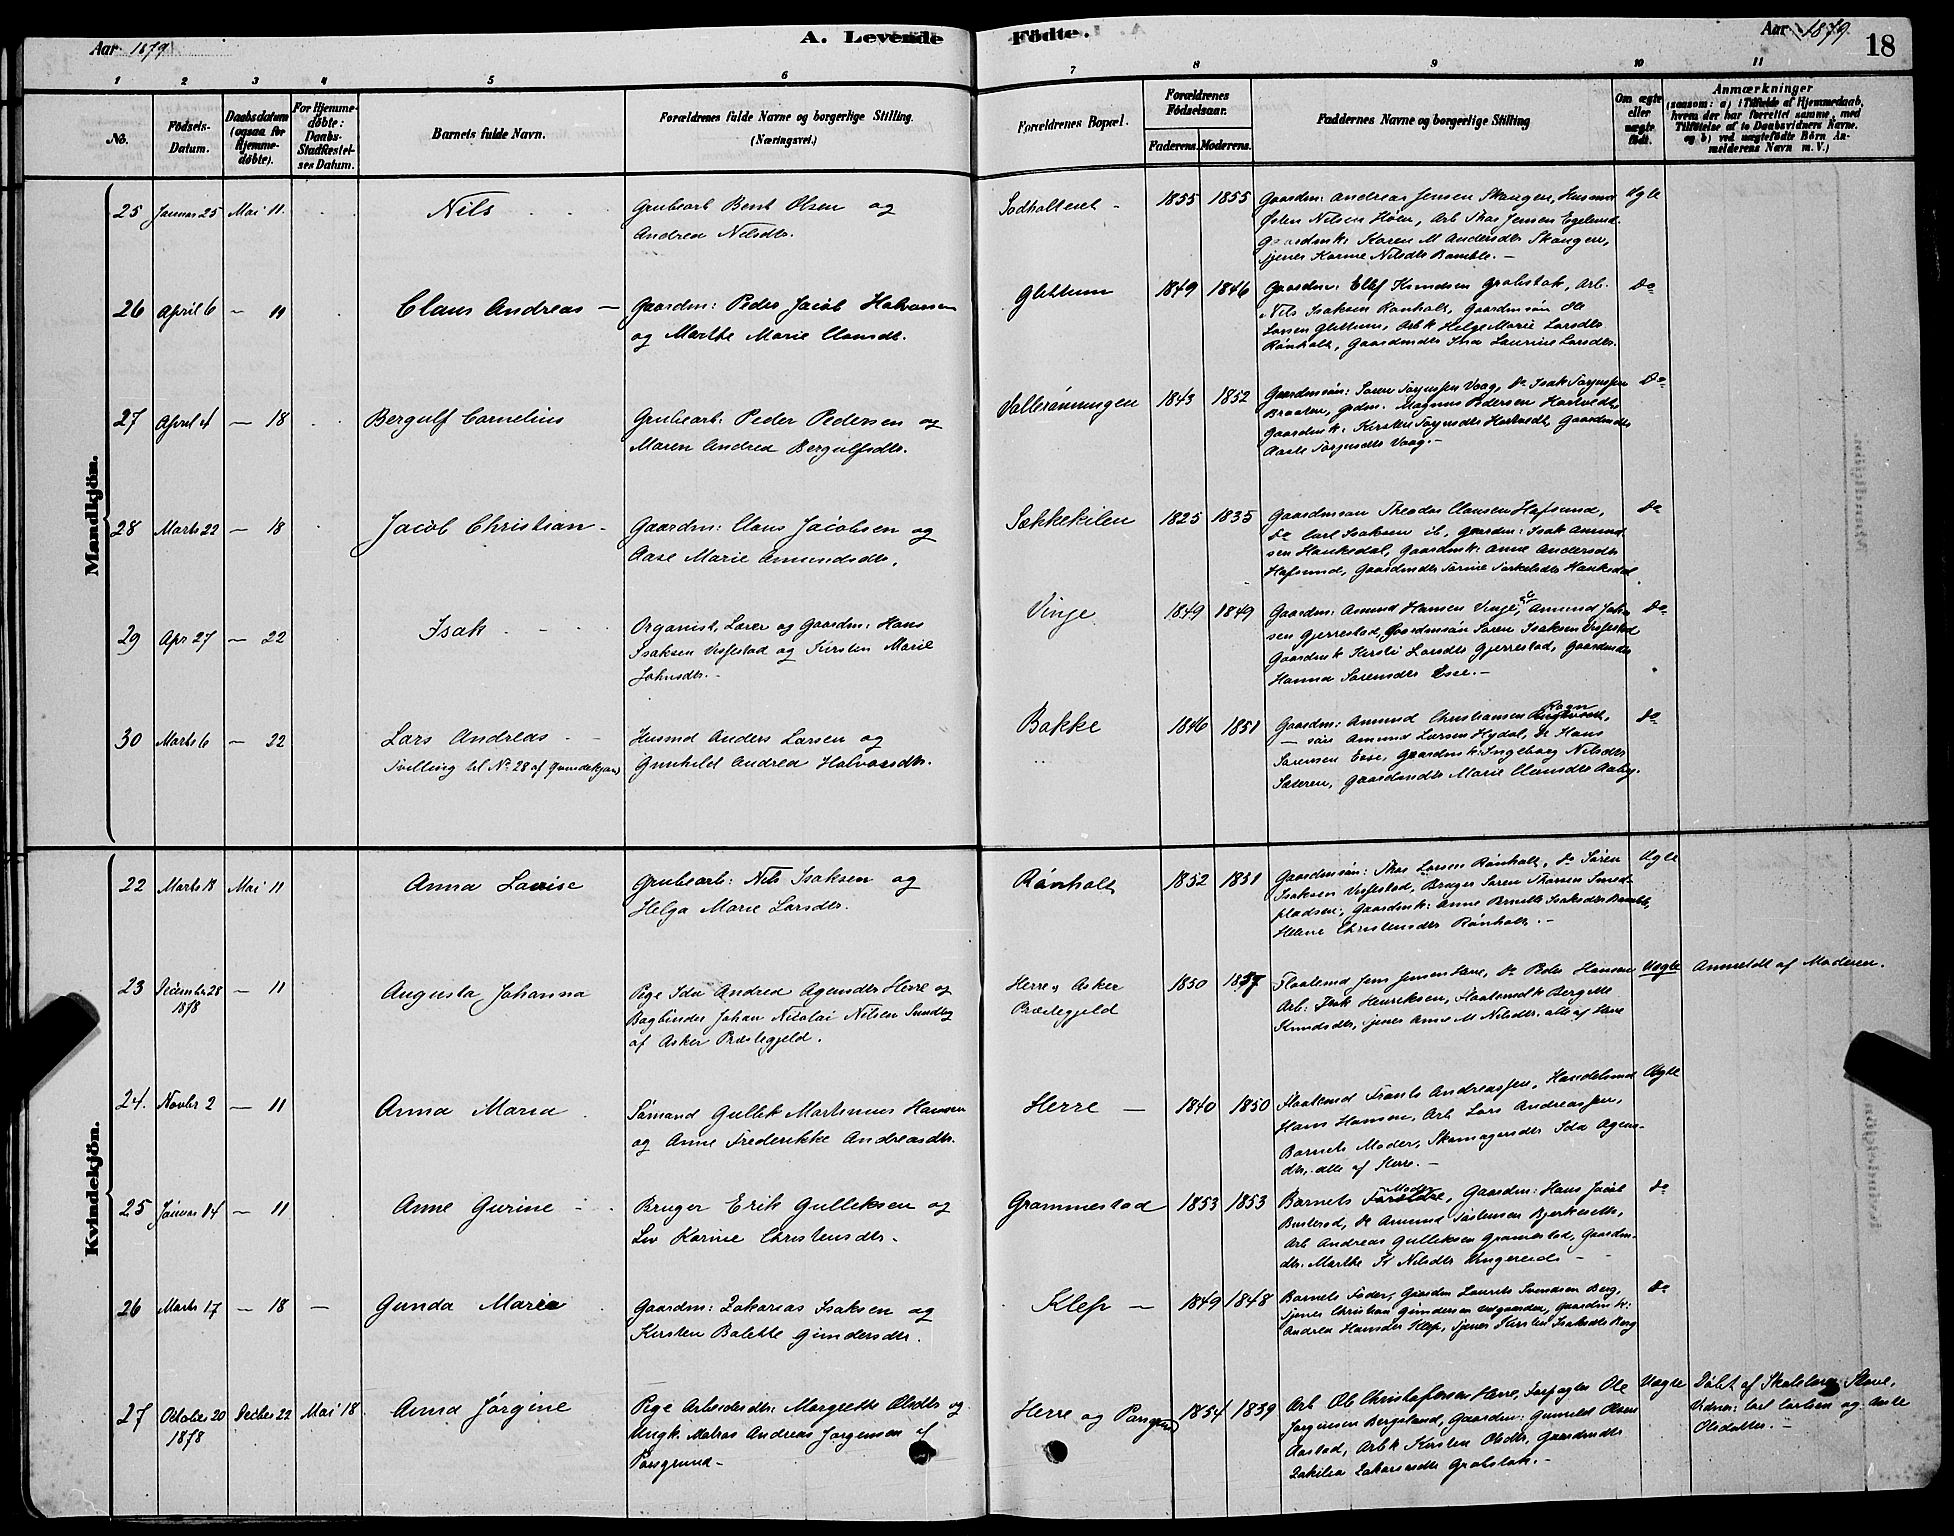 Aar 1879. A. Levende Fødte. Aar 1879. 18
1 2 3 4 5 6 7 8 9 10 11
No. Fødsels-Datum. Daabsdatum (ogsaa for Hjemme-døbte). For Hjemme-døbte: Daabs-Stadfæstel-ses Datum. Barnets fulde Navn. Forældrenes fulde Navne og borgerlige Stilling. (Næringsvei.) Forældrenes Bopæl. Forældrenes Fødselsaar. Faderens. Moderens. Faddernes Navne og borgerlige Stilling Om ægte eller uægte født. Anmærkninger (saasom: a) i Tilfælde af Hjemmedaab, hvem der har forrettet samme, med Tilføielse af to Daabsvidners Navne, og b) ved uægtefødte Børn An-melderens Navn m. V.)
Mandkjön.
25 Januar 25 Mai 11. Nils Grubearb Bent Olsen og
Andrea Nilsdtr.
Sodholteiet 1855 1855 Gaardm: Andreas Jensen Skaugen, Husmd
Østen Nilsen Høen, Arb Thor Jensen Egelund
Gaardmk: Karen M Andersdtr Skaugen,
tjenes Karine Nilsdtr Bamble. Ægte
26 April 6 11 Claus Andreas Gaardm: Peder Jacob Halvorsen
og Marthe Marie Clausdtr.
Glittum 1849 1846 Gaardm: Ellef Knudsen Grobstok, Arb.
Nils Isaksen Rønholt, Gaardmsøn Ole
Larsen Glittum, Arb k Helge Marie Larsdtr
Rønholt, Gaardmdtr Ina Laurine Larsdtr. Do
27 April 4 18 Bergulf Cornelius Grubearb: Peder Pedersen og
Maren Andrea Bergulfsdtr.
Vallerønningen 1843 1852 Gaardmsøn: Søren Jørgensen Vaag, Do Isak Jørgensen
Braaten, grdm. Magnus Pedersen Hartvedt,
Gaardmk: Kirsten Jørgensdtr Hartvedt, Gaardmdtr
Aaste Jørgensdtr Vaag. Do
28 Marts 22 18 Jacob Christian Gaardm: Claus Jacobsen og
Aase Marie Amundsdtr.
Sækkekilen 1825 1835 Gaardmsøn Theodor Clausen Hafsund,
Do Carl Isaksen ib, Gaardm: Isak Amund
sen Haukedal, Gaardmk: Anne Andersdtr
Hafsund, Gaardmdtr Torine Torkelsdtr Haukedal Do
29 Apr 27 22 Isak Organist, Lærer og Gaardm: Hans
Isaksen Vissestad og Kirsten Marie
Johnsdtr.
Vinge 1849 1849 Gaardm: Amund Hansen Vinge, Do Amund John
sen Gjerrestad, Gaardmsøn Søren Isaksen Vissestad
Gaardmk Kirsti Larsdtr Gjerrestad, Gaardmdtr
Hanna Sørensdtr Esse. Do
30 Marts 6 22 Lars Andreas
Tvilling til No 28 af Qvindekjøn Husmd Anders Larsen og
Gunhild Andrea Halvorsdtr.
Bakke 1846 1851 Gaardm: Amund Christiansen Rogn
søn Amund Larsen Hydal, Do Hans
Sørensen Esse, Gaardmk: Ingeborg Nilsdtr
Sæteren, Gaardmdtr Marie Clausdtr Aaby. Do
Kvindekjön.
22 Marts 18 Mai 11 Anna Lovise Grubearb: Nils Isaksen og
Helga Marie Larsdtr.
Rønholt 1852 1851 Gaardmsøn: Thor Larsen Rønholt, Do Søren
Isaksen Vissestad, Bruger Søren Thorsen Smed
pladsen, Gaardmk: Anne Birnelle Isaksdtr Bamble,
Helene Christensdtr Rønholt. Ægte
23 December 28
1878 11 Augusta Johanna Pige Ida Andrea Agensdtr Herre og
Bogbinder Johan Nicolai Nilsen Sundby
af Asker Præstegjeld.
Herre, Asker
Præstegjeld 1850 1857 Flaatemd Jens Jensen Herre, Do Peder Hansen
Arb: Isak Henriksen, Flaatemdk Bergitte
Knudsdtr, tjenes Anne M Nilsdtr, alle af Herre Uægte Anmeldt af Moderen.
24. Novbr 2 11 Anna Maria Sømand Gullik Martinius Hansen
og Anne Frederikke Andreasdtr.
Herre 1840 1850 Flaatemd Frants Andreassen, Handelsmd
Hans Hansen, Arb Lars Andreassen,
Barnets Moder, Skomagerdtr Ida Agens-
dtr, alle af Herre. Ægte
25 Januar 14 11 Anne Gurine Bruger Erik Gulleksen og
Liv Karine Christensdtr.
Grammestad 1853 1853 Barnets Moder, Gaardm: Hans Jacob
Busterød, Do Amund Tostensen Bjerkeseth,
Arb Andreas Gulleksen Gramestad, Gaardm-
dtr. Marthe K Nilsdtr Ungereid Do
26 Marts 17 18 Gunda Maria Gaardm: Zakarias Isaksen og
Kirsten Bolette Gundersdtr.
Klep 1849 1848 Barnets Fader, Gaardm Laurits Svendsen Berg,
tjenes Christian Gundersen Ungereid, Gaardmk:
Andrea Hansdtr Klep, tjenes Kirsten Isaksdtr Berg Do
27 October 20
1878 Decbr 22 Mai 18 Anna Jørgine Pige Arbeidsdtr: Margrethe Olsdtr og
Ungk. Matros Andreas Jørgensen af
Porsgrund.
Herre og Porsgrund 1854 1859 Arb Ole Christophersen Herre, Forpagter Ole
Jørgensen Bergsland, Gaardm: Gunild Olsen
Aastad, Arb k Kirsten Olsdtr, Gaardmdtr
Zakilia Zakariasdtr Grobstok. Uægte Døbt af Skolelærer Stove,
Vidner: Carl Carlsen og Anne
Olsdatter.